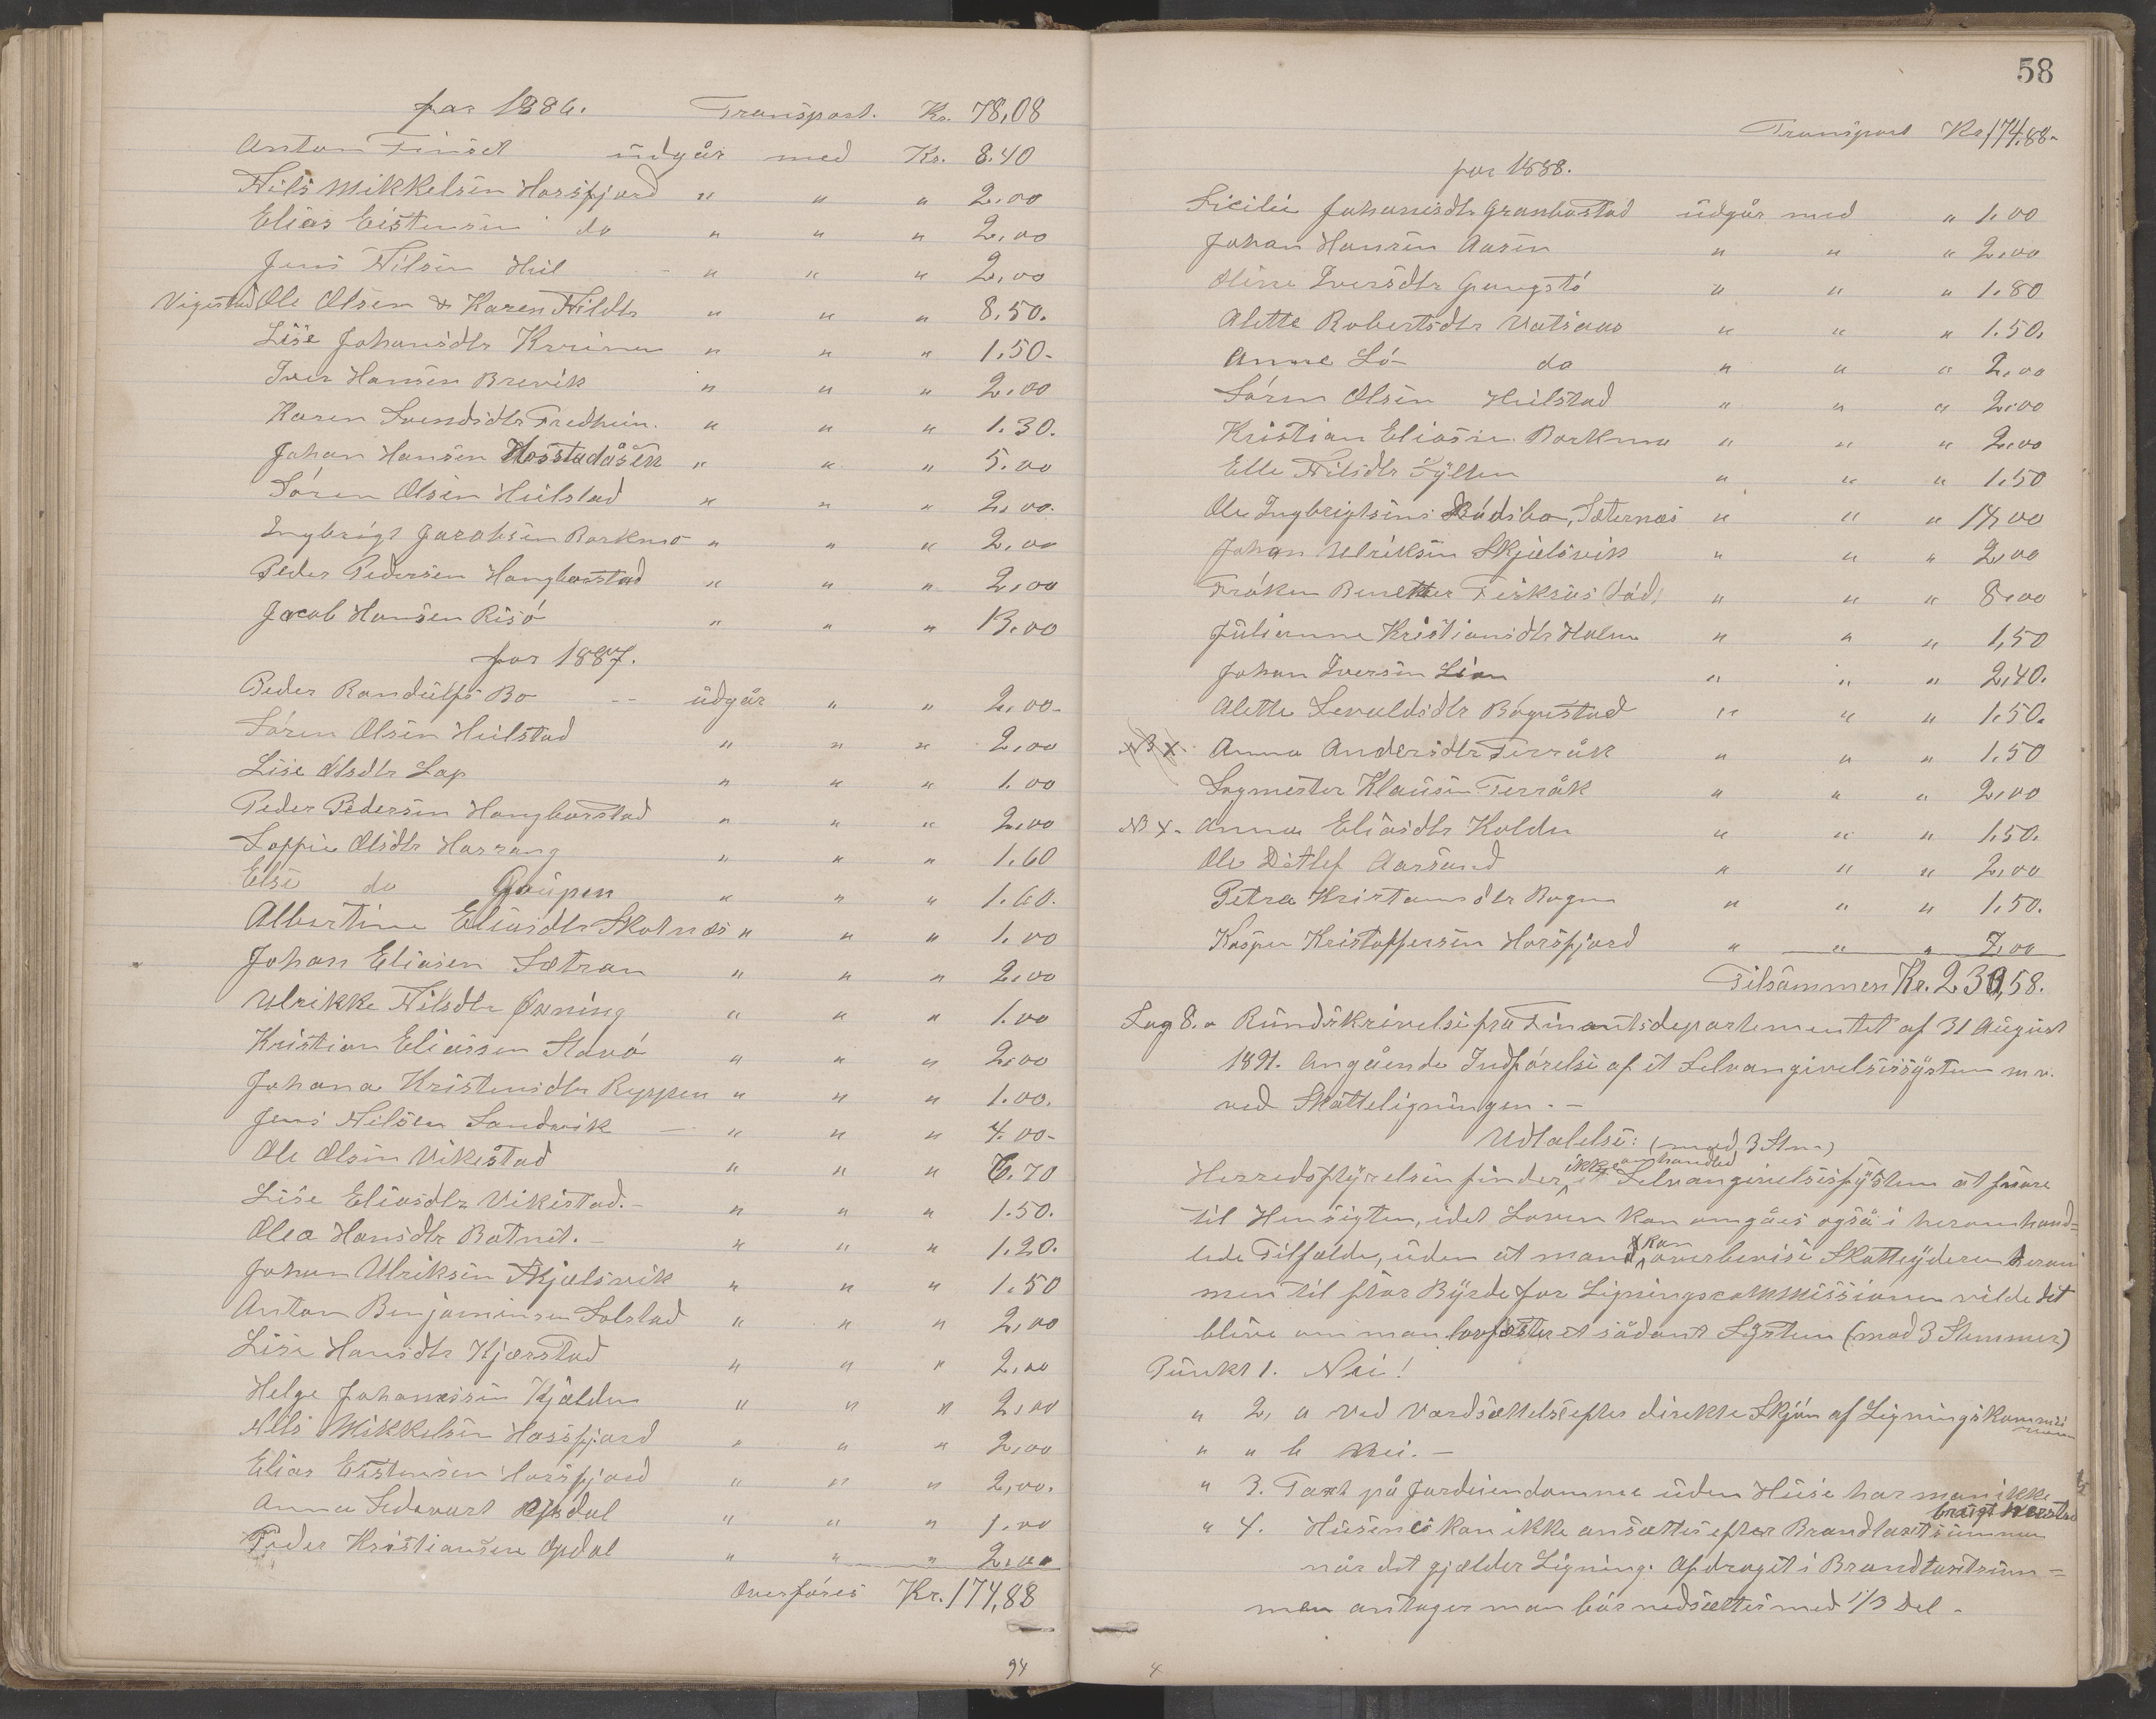 for 1886. Transport. Kr. 78,08
Anton Finset udgår med Kr. 8.40
Nils Mikkelsen Horsfjord " " " 2.00
Elias Eistensen do " " " 2,00
Jens Nilsen Hiil " " " 2,00
Vigestad Ole Olsen & Karen Nildtr " " " 8,50.
Lise Johansdtr " " " 1,50-
Iver Hansen Brevik " " " 2.00
Karen Svendsdtr Fredheim. " " " 1.30.
Johan Hansen Horstadåsen " " " 5.00
Sören Olsen Heilstad " " " 2,00.
Ingbrigt Jacobsen Barkmo " " " 2,00
Peder Pedersen Hongbarstad " " " 2,00
Jacob Hansen Risö " " " 13.00
for 1887.
Peder Randulfs Bo -- udgår " " 2,00-
Sören Olsen Heilstad " " " 2,00
Lise Olsdtr Lap " " " 1.00
Peder Pedersen Hongbarstad " " " 2,00
Soffie Olsdtr Harrang " " " 1.60
Else do Gaupen " " " 1.60.
Albertine Eliasdtr Skotnæs " " " 1.00
Johan Eliasen Sætran " " " 2,00
Ulrikke Nilsdtr Øxning " " " 1.00
Kristian Eliassen Stavö " " " 2,00
Johana Kristensdtr Reppen " " " 1.00.
Jens Nilsen Sandvik " " " 4.00-
Ole Olsen Vikestad " " " 6.70
Lise Eliasdtr Vikestad. - " " " 1.50.
Olea Hansdtr Botnet. - " " " 1.20.
Johan Ulriksen Skjelsvik " " " 1.50
Anton Benjaminsen Solstad " " " 2,00
Lise Hansdtr Kjærstad " " " 2,00
Helge Johannesen Kjelden " " " 2,00
Nils Mikkelsen Horsfjord " " " 2,00
Elias Eistensen Horsfjord " " " 2,00.
Anna Sedevart Opdal " " " 1.00
Peder Kristiansen Opdal " " " 2,00
Overföres Kr. 174,88
94
58
Transport Kr 174.88-
for 1888.
Sicilie Johanesdtr Granbostad udgår med " 1.00
Johan Hansen Aasen " " " 2,00
Oline Iversdtr Gangstö " " " 1.80
Alette Robertsdtr Vatsaas " " " 1.50.
Anne Lö- do " " " 2,00
Sören Olsen Heilstad " " " 2,00
Kristian Eliasen Barkmo " " " 2,00
Elle Nilsdtr Sylten " " " 1.50
Ole Ingbrigtsens Dödsbo, Sæternæs " " " 14,00
Johan Ulriksen Skjelsvik " " " 2,00
Fröken (död) " " " 8,00
Julianne Kristiansdtr Holm " " " 1,50
Johan Iversen Lian " " " 2,40.
Alette Sevaldsdtr Bögestad " " " 1.50.
NB X. Anna Andersdtr Terråk " " " 1.50
Sogmester Klausen Terråk " " " 2,00
NB X. Anna Eliasdtr Kolden " " " 1.50.
Ole Detlef Aarsund " " " 2,00
Petra Kristansdtr Bogen " " " 1.50.
Kasper Kristoffersen Horsfjord " " " 7,00
Tilsammen Kr. 230,58.
Sag 8. Rundskrivelse fra Finantsdepartementet af 31 August
1891. Angående Indförelse af et Selvangivelsessystem m.v.
ved Skatteligningen. -
Udtalelse: (mod 3 Stm)
Herredsstyrelsen finder ikke omhandled et Selvangivelsessystem at svare
til Hensigten, idet Loven kan omgåes også i heromhand=
lede Tilfælde, uden at mand kan overbevise Skatteyderen herom
men til stor Byrde for Ligningscommissionen vilde det
blive om man lovfæster et sådant System (mod 3 Stemmer)
Punkt 1. Nei!
" 2, a Ved Værdsættelse efter direkte Skjön af Ligningskommissionen
" " b Nei. -
" 3. Taxt på Jordeiendomme uden Huse har man ikke
" 4. Husene kan ikke ansættes efter Brandtaxtsummen
når det gjælder Ligning. Afdraget i Brandtaxtsum=
men antages man bör nedsættes med 1/3 Del -
4